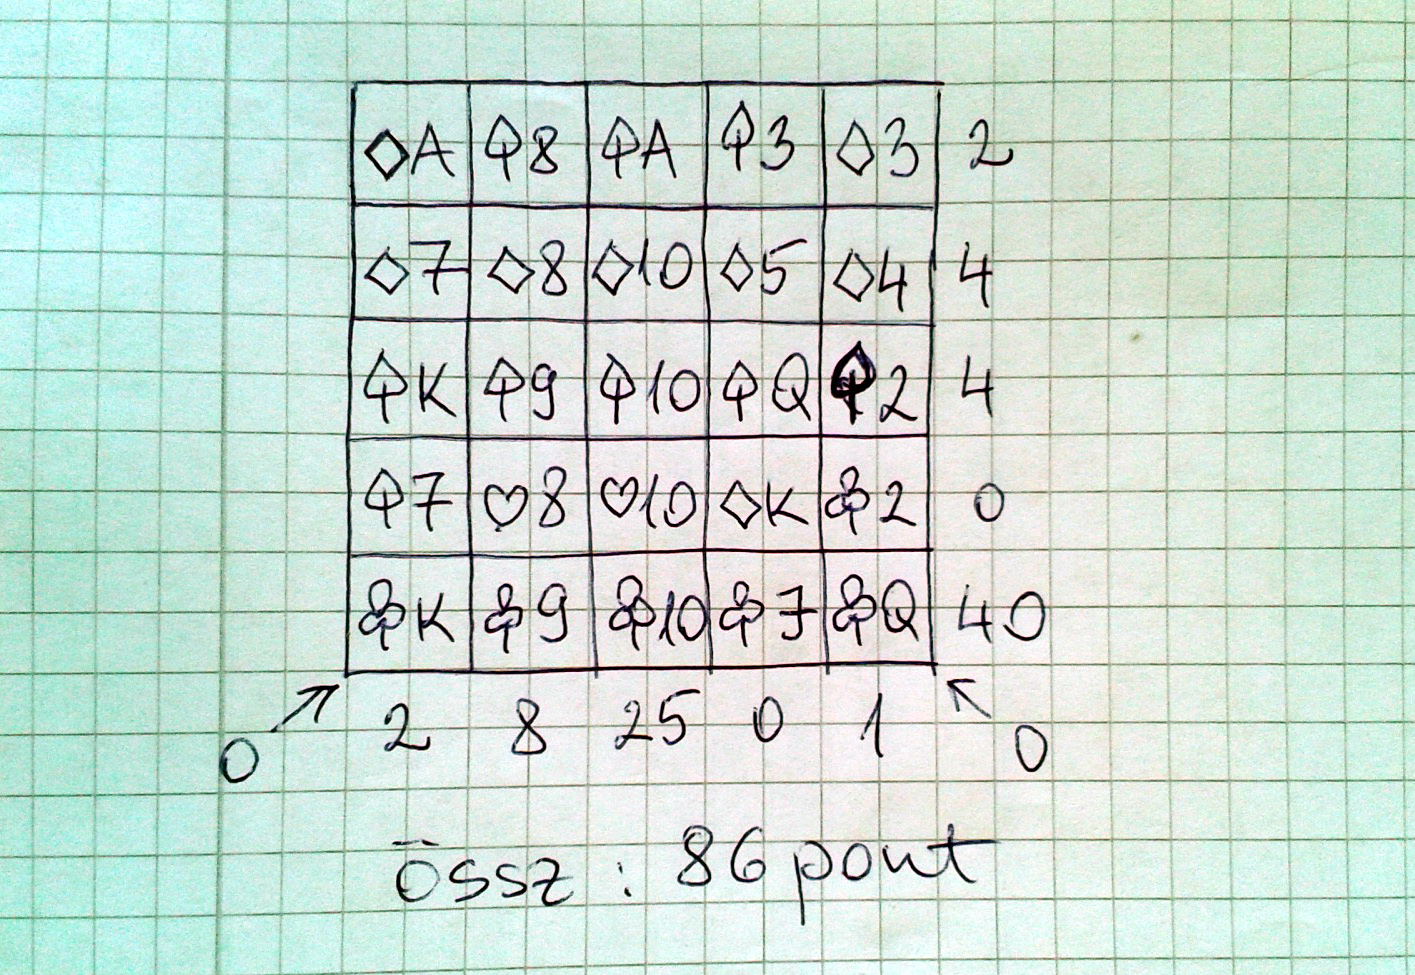 ♢A ♤8 ♤A ♤3 ♢3 2
♢7 ♢8 ♢10 ♢5 ♢4 4
♤K ♤9 ♤10 ♤Q ♤2 4
♤7 ♡8 ♡10 ♢K ♧2 0
♧K ♧9 ♧10 ♧7 ♧Q 40
0 ↗ 2 8 25 0 1 ↖ 0
össz: 86 pont